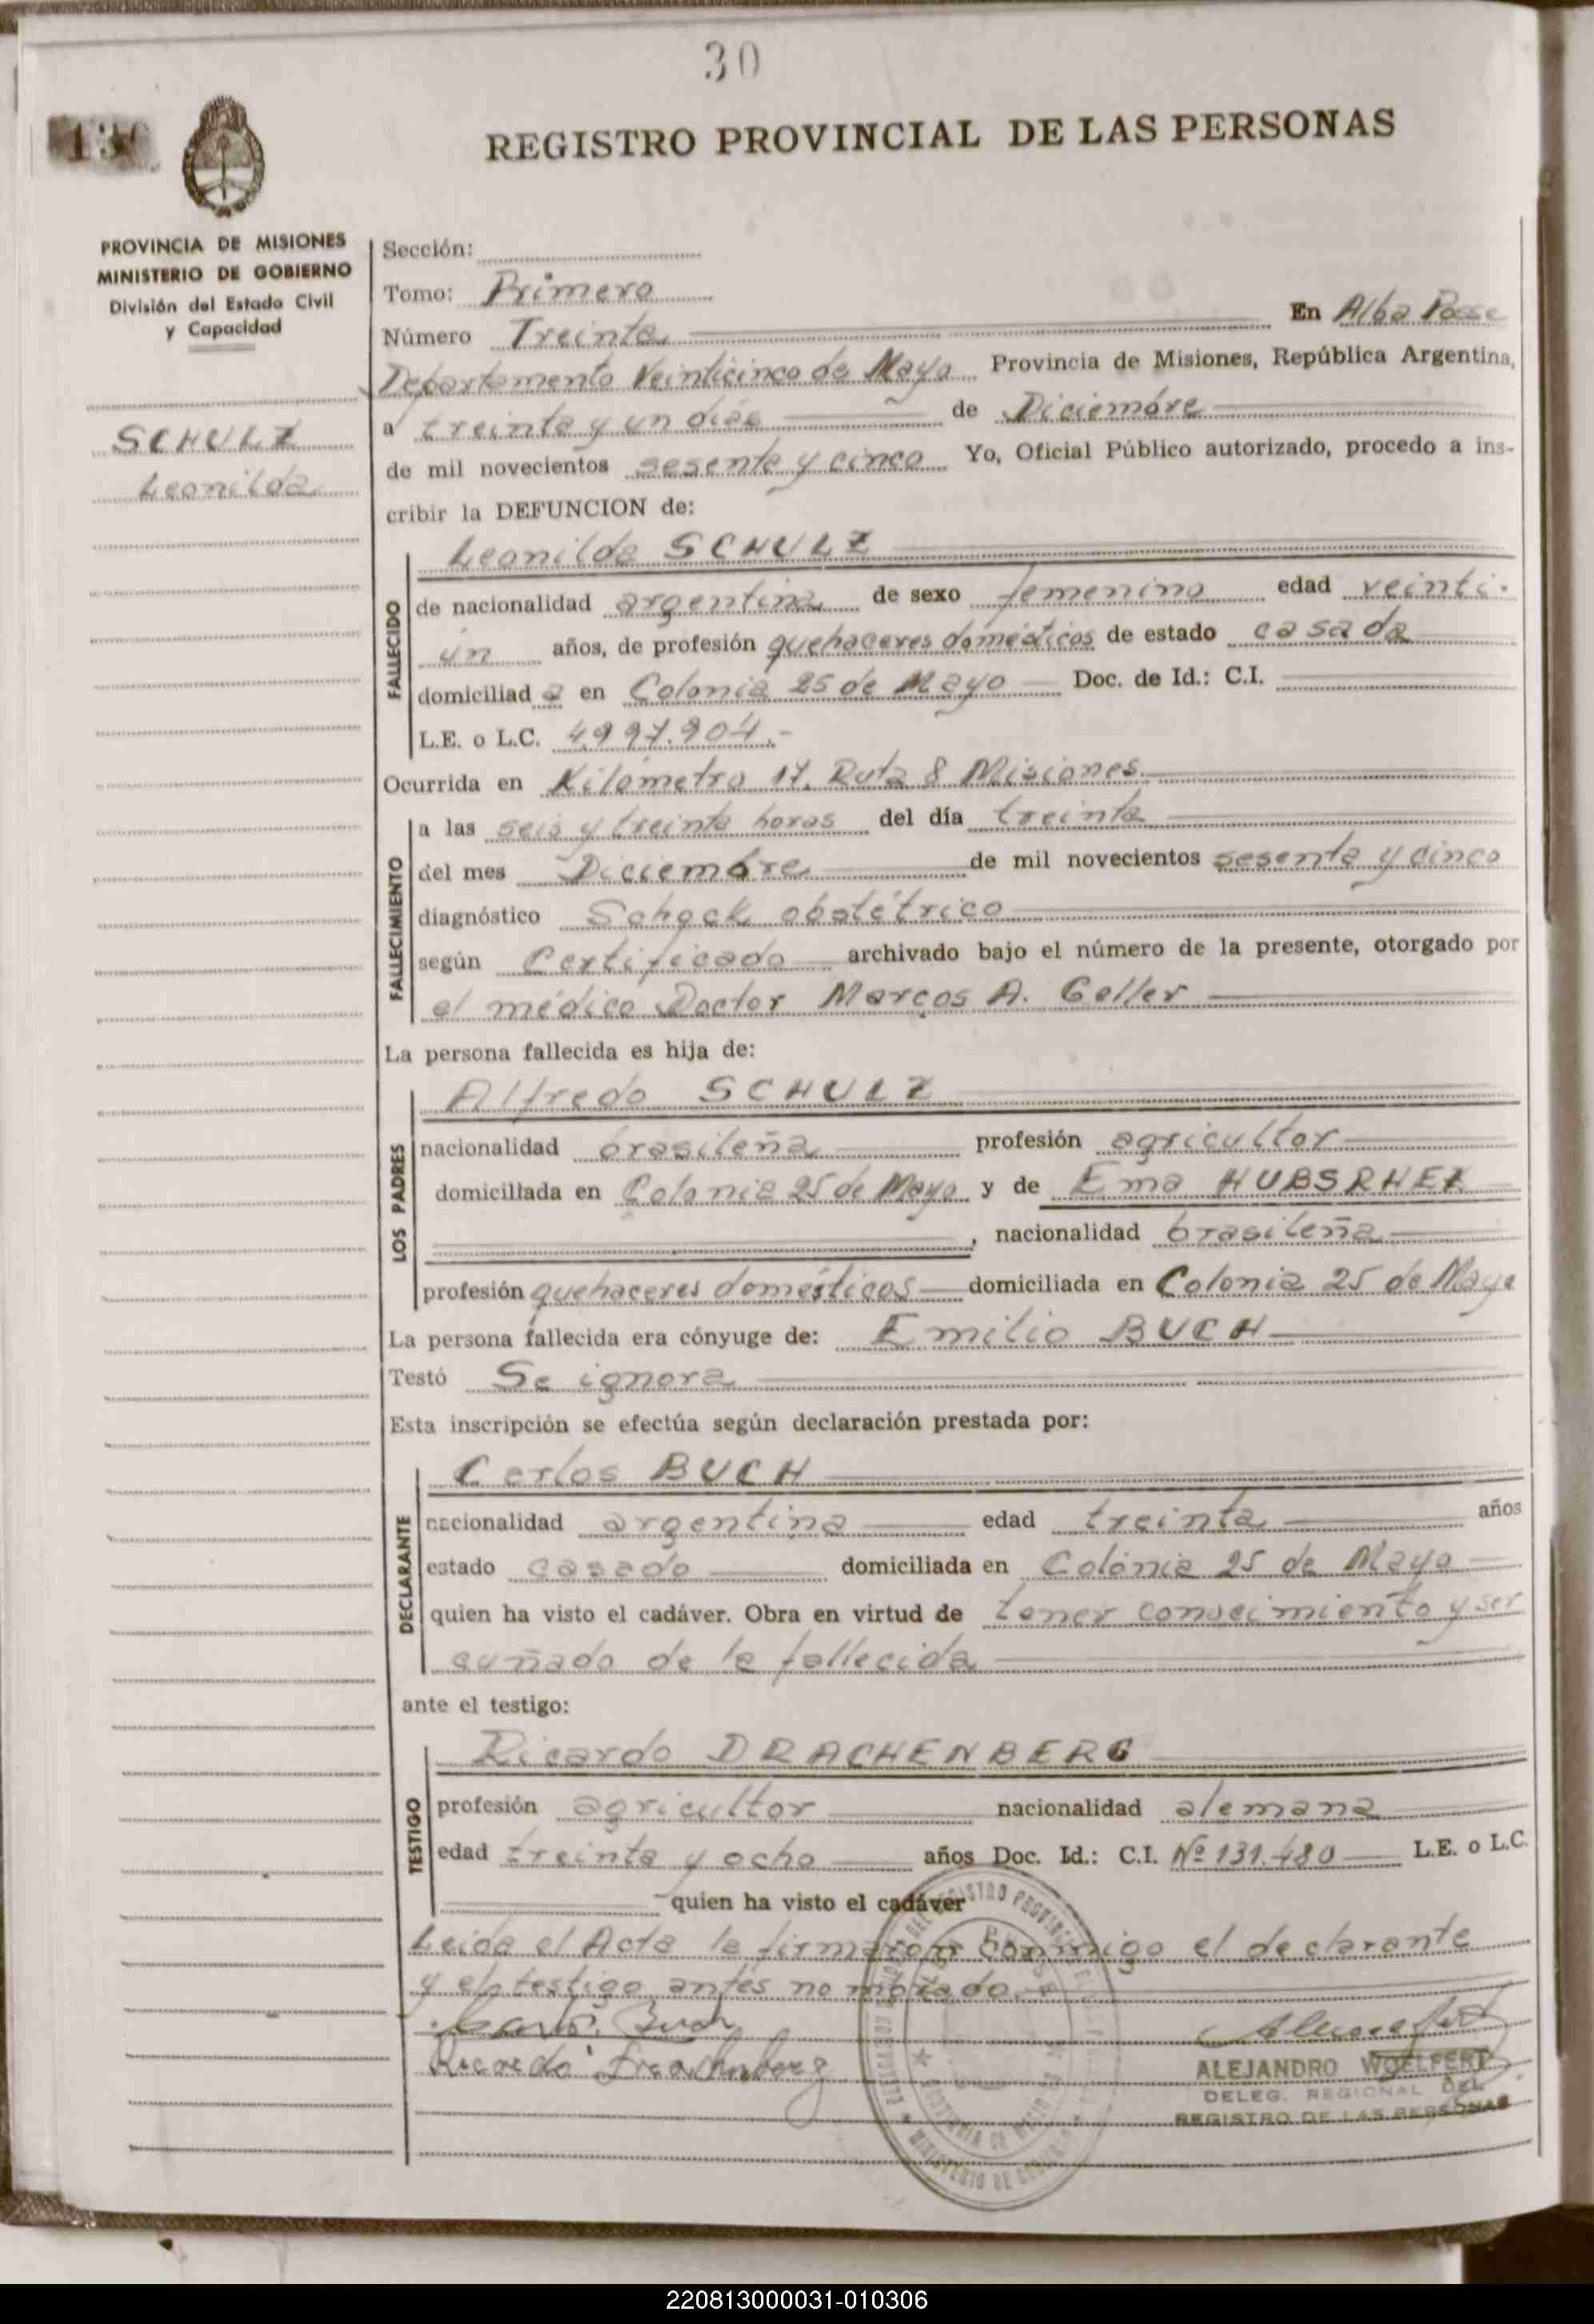 30
REGISTRO PROVINCIAL DE LAS PERSONAS
PROVINCIA DE MISIONES
MINISTERIO DE GOBIERNO
División del Estado Civil
y Capacidad
SCHULZ
Leonilda
Sección:
Tomo: Primero
Número Treinta En Alba Posse
Departamento Veinticinco de Mayo Provincia de Misiones, República Argentina,
a treinta y un días de Diciembre
de mil novecientos sesenta y cinco Yo, Oficial Público autorizado, procedo a ins-
cribir la DEFUNCION de:
Leonilda SCHULZ
FALLECIDO
de nacionalidad argentina de sexo femenino edad veinti-
ún años, de profesión quehaceres domésticos de estado casada
domiciliad a en Colonia 25 de Mayo Doc. de Id.: C.I.
L.E. o L.C. 4.997.904.-
Ocurrida en Kilómetro 17, Ruta 8 Misiones.
FALLECIMIENTO
a las seis y treinta horas del día treinta
del mes Diciembre de mil novecientos sesenta y cinco
diagnóstico Schock obstétrico
según Certificado archivado bajo el número de la presente, otorgado por
el médico Doctor Marcos A. Geller
La persona fallecida es hija de:
LOS PADRES
Alfredo SCHULZ
nacionalidad brasileña profesión agricultor
domiciliada en Colonia 25 de Mayo y de Ema HUBSRHEZ
, nacionalidad brasileña
profesión quehaceres domésticos domiciliada en Colonia 25 de Mayo
La persona fallecida era cónyuge de: Emilio BUCH
Testó Se ignora
Esta inscripción se efectúa según declaración prestada por:
DECLARANTE
Carlos BUCH
nacionalidad argentina edad treinta años
estado casado domiciliada en Colonia 25 de Mayo
quien ha visto el cadáver. Obra en virtud de tener conocimiento y ser
cuñado de la fallecida
ante el testigo:
TESTIGO
Ricardo DRACHENBERG
profesión agricultor nacionalidad alemana
edad treinta y ocho años Doc. Id.: C.I. Nº 131.480 L.E. o L.C.
quien ha visto el cadáver
Leída el Acta la firmaron conmigo el declarante
y el testigo antes nombrado.
Carlos Buch
Ricardo Drachenberg
ALEJANDRO WOELFERT
DELEG. REGIONAL DEL
REGISTRO DE LAS PERSONAS
220813000031-010306